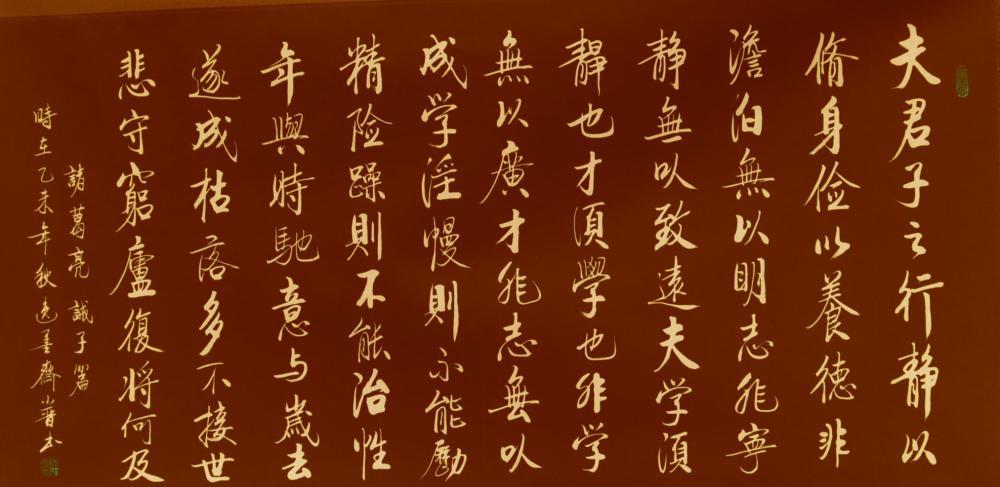 夫君子之行静以
脩身俭以養德非
澹泊無以明志非寧
静無以致遠夫学須
静也才須學也非学
無以廣才非志無以
成学淫慢則不能勵
精险躁則不能治性
年與時馳意与歲去
遂成枯落多不接世
悲守窮廬復将何及
諸葛亮誡子篇
時在乙未年秋逸墨齋書